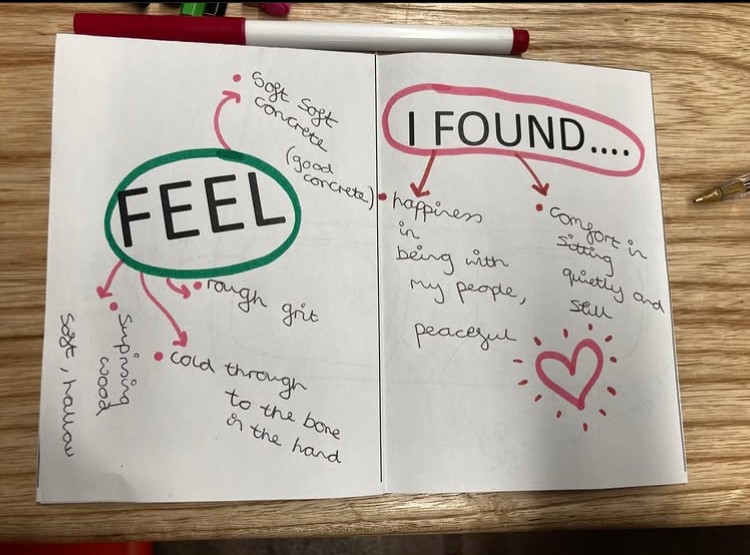 FEEL
• Soft soft
concrete
(good
concrete)
• rough grit
• cold through
to the bone
in the hand
• surprising
wood
soft, hallow
I FOUND....
• happiness
in
being with
my people,
peaceful
• comfort in
sitting
quietly and
still